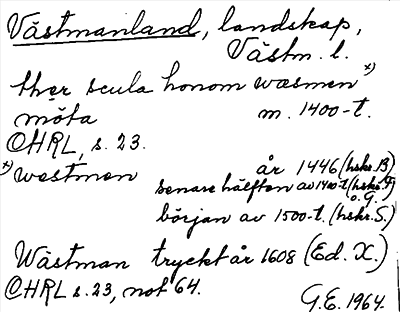 Västmanland, landskap,
Västm. l.
ther scula honom wæsmen x)
möta m. 1400-t.
CHRL, s. 23.
x) westmen år 1446 (hskr. B)
senare hälften av 1400-t. (hskr. F
o. G.)
början av 1500-t. (hskr. S.)
Wästman tryckt år 1608 (Ed. X.)
CHRL s. 23, not 64.
G.E. 1964.